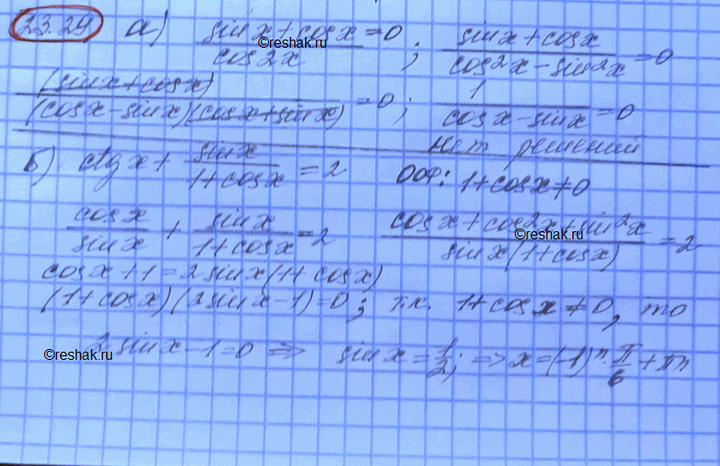 23.29 а) (sinx + cosx)/(cos2x) = 0 ; (sinx + cosx)/(cos²x - sin²x) = 0
©reshak.ru
(sinx + cosx)/((cosx - sinx)(cosx + sinx)) = 0 ; 1/(cosx - sinx) = 0
Нет решений
б) ctgx + sinx/(1 + cosx) = 2 ООФ: 1 + cosx ≠ 0
cosx/sinx + sinx/(1 + cosx) = 2 (cosx + cos²x + sin²x)/(sinx(1 + cosx)) = 2
©reshak.ru
cosx + 1 = 2sinx(1 + cosx)
(1 + cosx)(2sinx - 1) = 0 ; т.к. 1 + cosx ≠ 0, то
2sinx - 1 = 0 ⇒ sinx = 1/2; ⇒ x = (-1)ⁿ · π/6 + πn
©reshak.ru